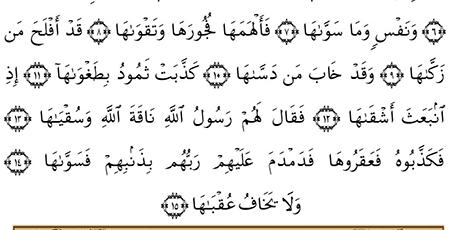 ﴿٦﴾ وَنَفْسٍ وَمَا سَوَّىٰهَا ﴿٧﴾ فَأَلْهَمَهَا فُجُورَهَا وَتَقْوَىٰهَا ﴿٨﴾ قَدْ أَفْلَحَ مَن
زَكَّىٰهَا ﴿٩﴾ وَقَدْ خَابَ مَن دَسَّىٰهَا ﴿١٠﴾ كَذَّبَتْ ثَمُودُ بِطَغْوَىٰهَآ ﴿١١﴾ إِذِ
ٱنۢبَعَثَ أَشْقَىٰهَا ﴿١٢﴾ فَقَالَ لَهُمْ رَسُولُ ٱللَّهِ نَاقَةَ ٱللَّهِ وَسُقْيَـٰهَا ﴿١٣﴾
فَكَذَّبُوهُ فَعَقَرُوهَا فَدَمْدَمَ عَلَيْهِمْ رَبُّهُم بِذَنۢبِهِمْ فَسَوَّىٰهَا ﴿١٤﴾
وَلَا يَخَافُ عُقْبَـٰهَا ﴿١٥﴾